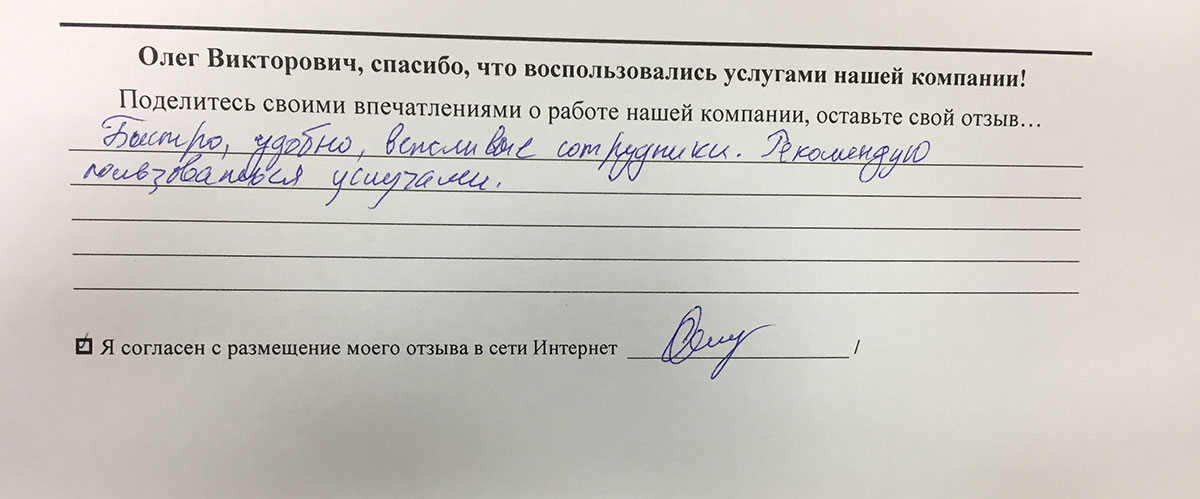 Олег Викторович, спасибо, что воспользовались услугами нашей компании!
Поделитесь своими впечатлениями о работе нашей компании, оставьте свой отзыв…
Быстро, удобно, вежливые сотрудники. Рекомендую
пользоваться услугами.
Я согласен с размещение моего отзыва в сети Интернет /